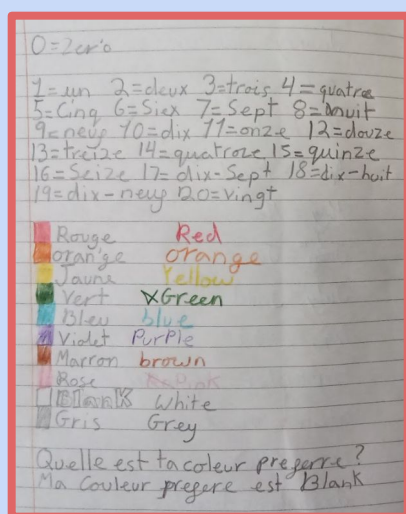 0=Zero
1=un 2=deux 3=trois 4=quatre
5=Cinq 6=Siex 7=Sept 8=huit
9=neuf 10=dix 11=onze 12=douze
13=treize 14=quatroze 15=quinze
16=Seize 17=dix-Sept 18=dix-huit
19=dix-neuf 20=vingt
Rouge Red
orange orange
Jaune Yellow
Vert Green
Bleu blue
Violet Purple
Marron brown
Rose Pink
Blank White
Gris Grey
Quelle est ta coleur pregerre?
Ma Couleur pregere est Blank